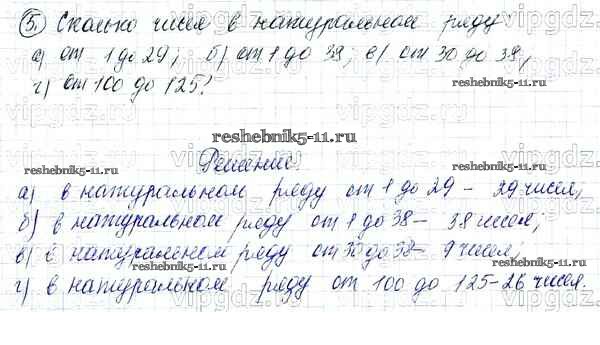 5. Сколько чисел в натуральном ряду
а) от 1 до 29; б) от 1 до 38; в) от 30 до 38,
г) от 100 до 125?
reshebnik5-11.ru
reshebnik5-11.ru
Решение.
reshebnik5-11.ru
reshebnik5-11.ru
а) в натуральном ряду от 1 до 29 - 29 чисел;
б) в натуральном ряду от 1 до 38 - 38 чисел;
в) в натуральном ряду от 30 до 38 - 9 чисел;
reshebnik5-11.ru
г) в натуральном ряду от 100 до 125 - 26 чисел.